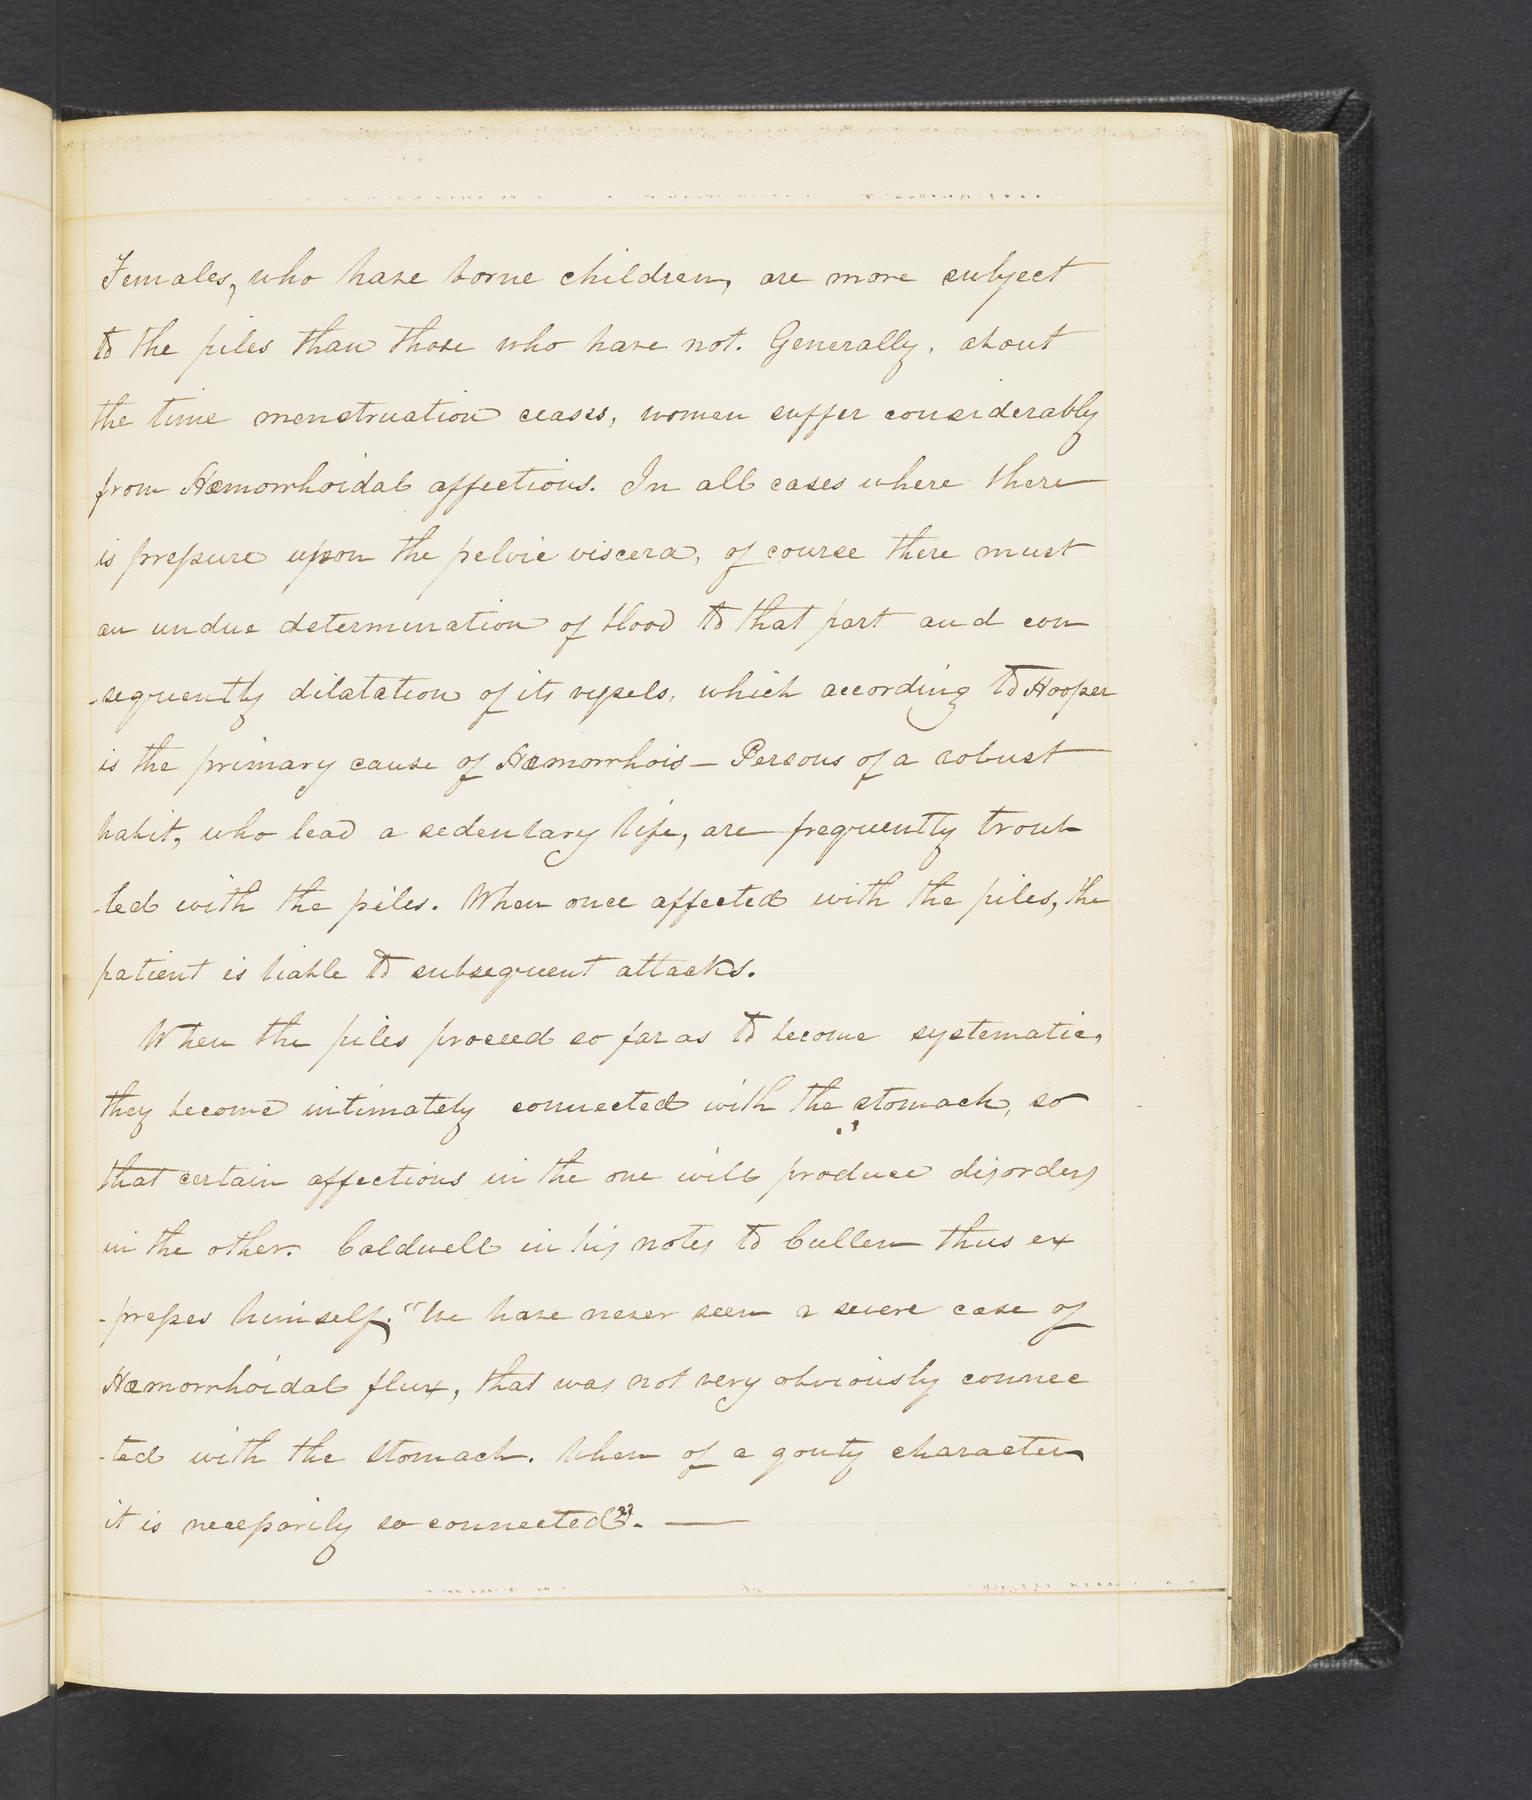 Females, who have borne children, are more subject
to the piles than those who have not. Generally, about
the time menstruation ceases, women suffer considerably
from Hæmorrhoidal affections. In all cases where there
is pressure upon the pelvic viscera, of course there must
an undue determination of blood to that part and con
-sequently dilatation of its vessels, which according to Hooper
is the primary cause of Hæmorrhois — Persons of a robust
habit, who lead a sedentary life, are frequently troub
-led with the piles. When once affected with the piles, the
patient is liable to subsequent attacks.
When the piles proceed so far as to become systematic,
they become intimately connected with the stomach, so
that certain affections in the one will produce disorders
in the other. Caldwell in his notes to Cullen thus ex
-presses himself; "We have never seen a severe case of
Hæmorrhoidal flux, that was not very obviously connec
-ted with the stomach. When of a gouty character
it is necessarily so connected". —